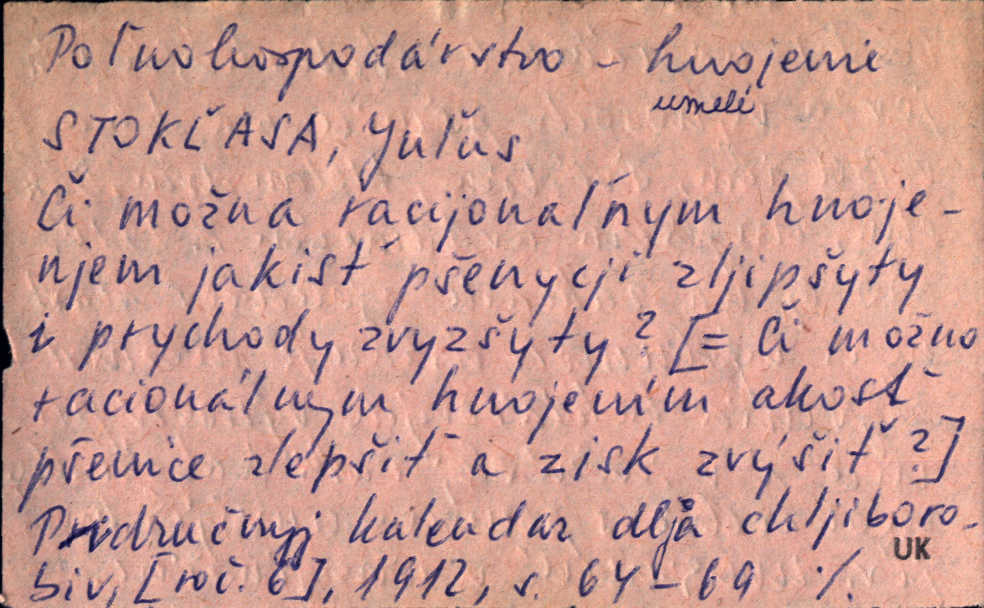 Poľnohospodárstvo - hnojenie
umelé
STOKĽASA, Juľus
Či možna racijonaľnym hnoje-
njem jakisť pšenycji zljipšyty
i prychody zvyzšyty? [= Či možno
racionálnym hnojením akosť
pšenice zlepšiť a zisk zvýšiť?]
Pridručnyj kalendar dlja chljiboro-
biv, [roč. 6], 1912, s. 64-69 ./.
UK